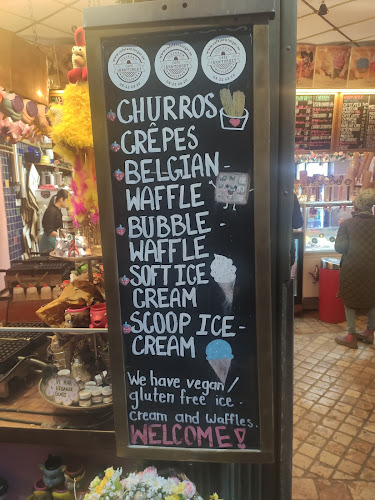 CHURROS
CRÊPES
BELGIAN-
WAFFLE
BUBBLE-
WAFFLE
SOFT ICE
CREAM
SCOOP ICE-
CREAM
We have vegan/
gluten free ice-
cream and waffles.
WELCOME!